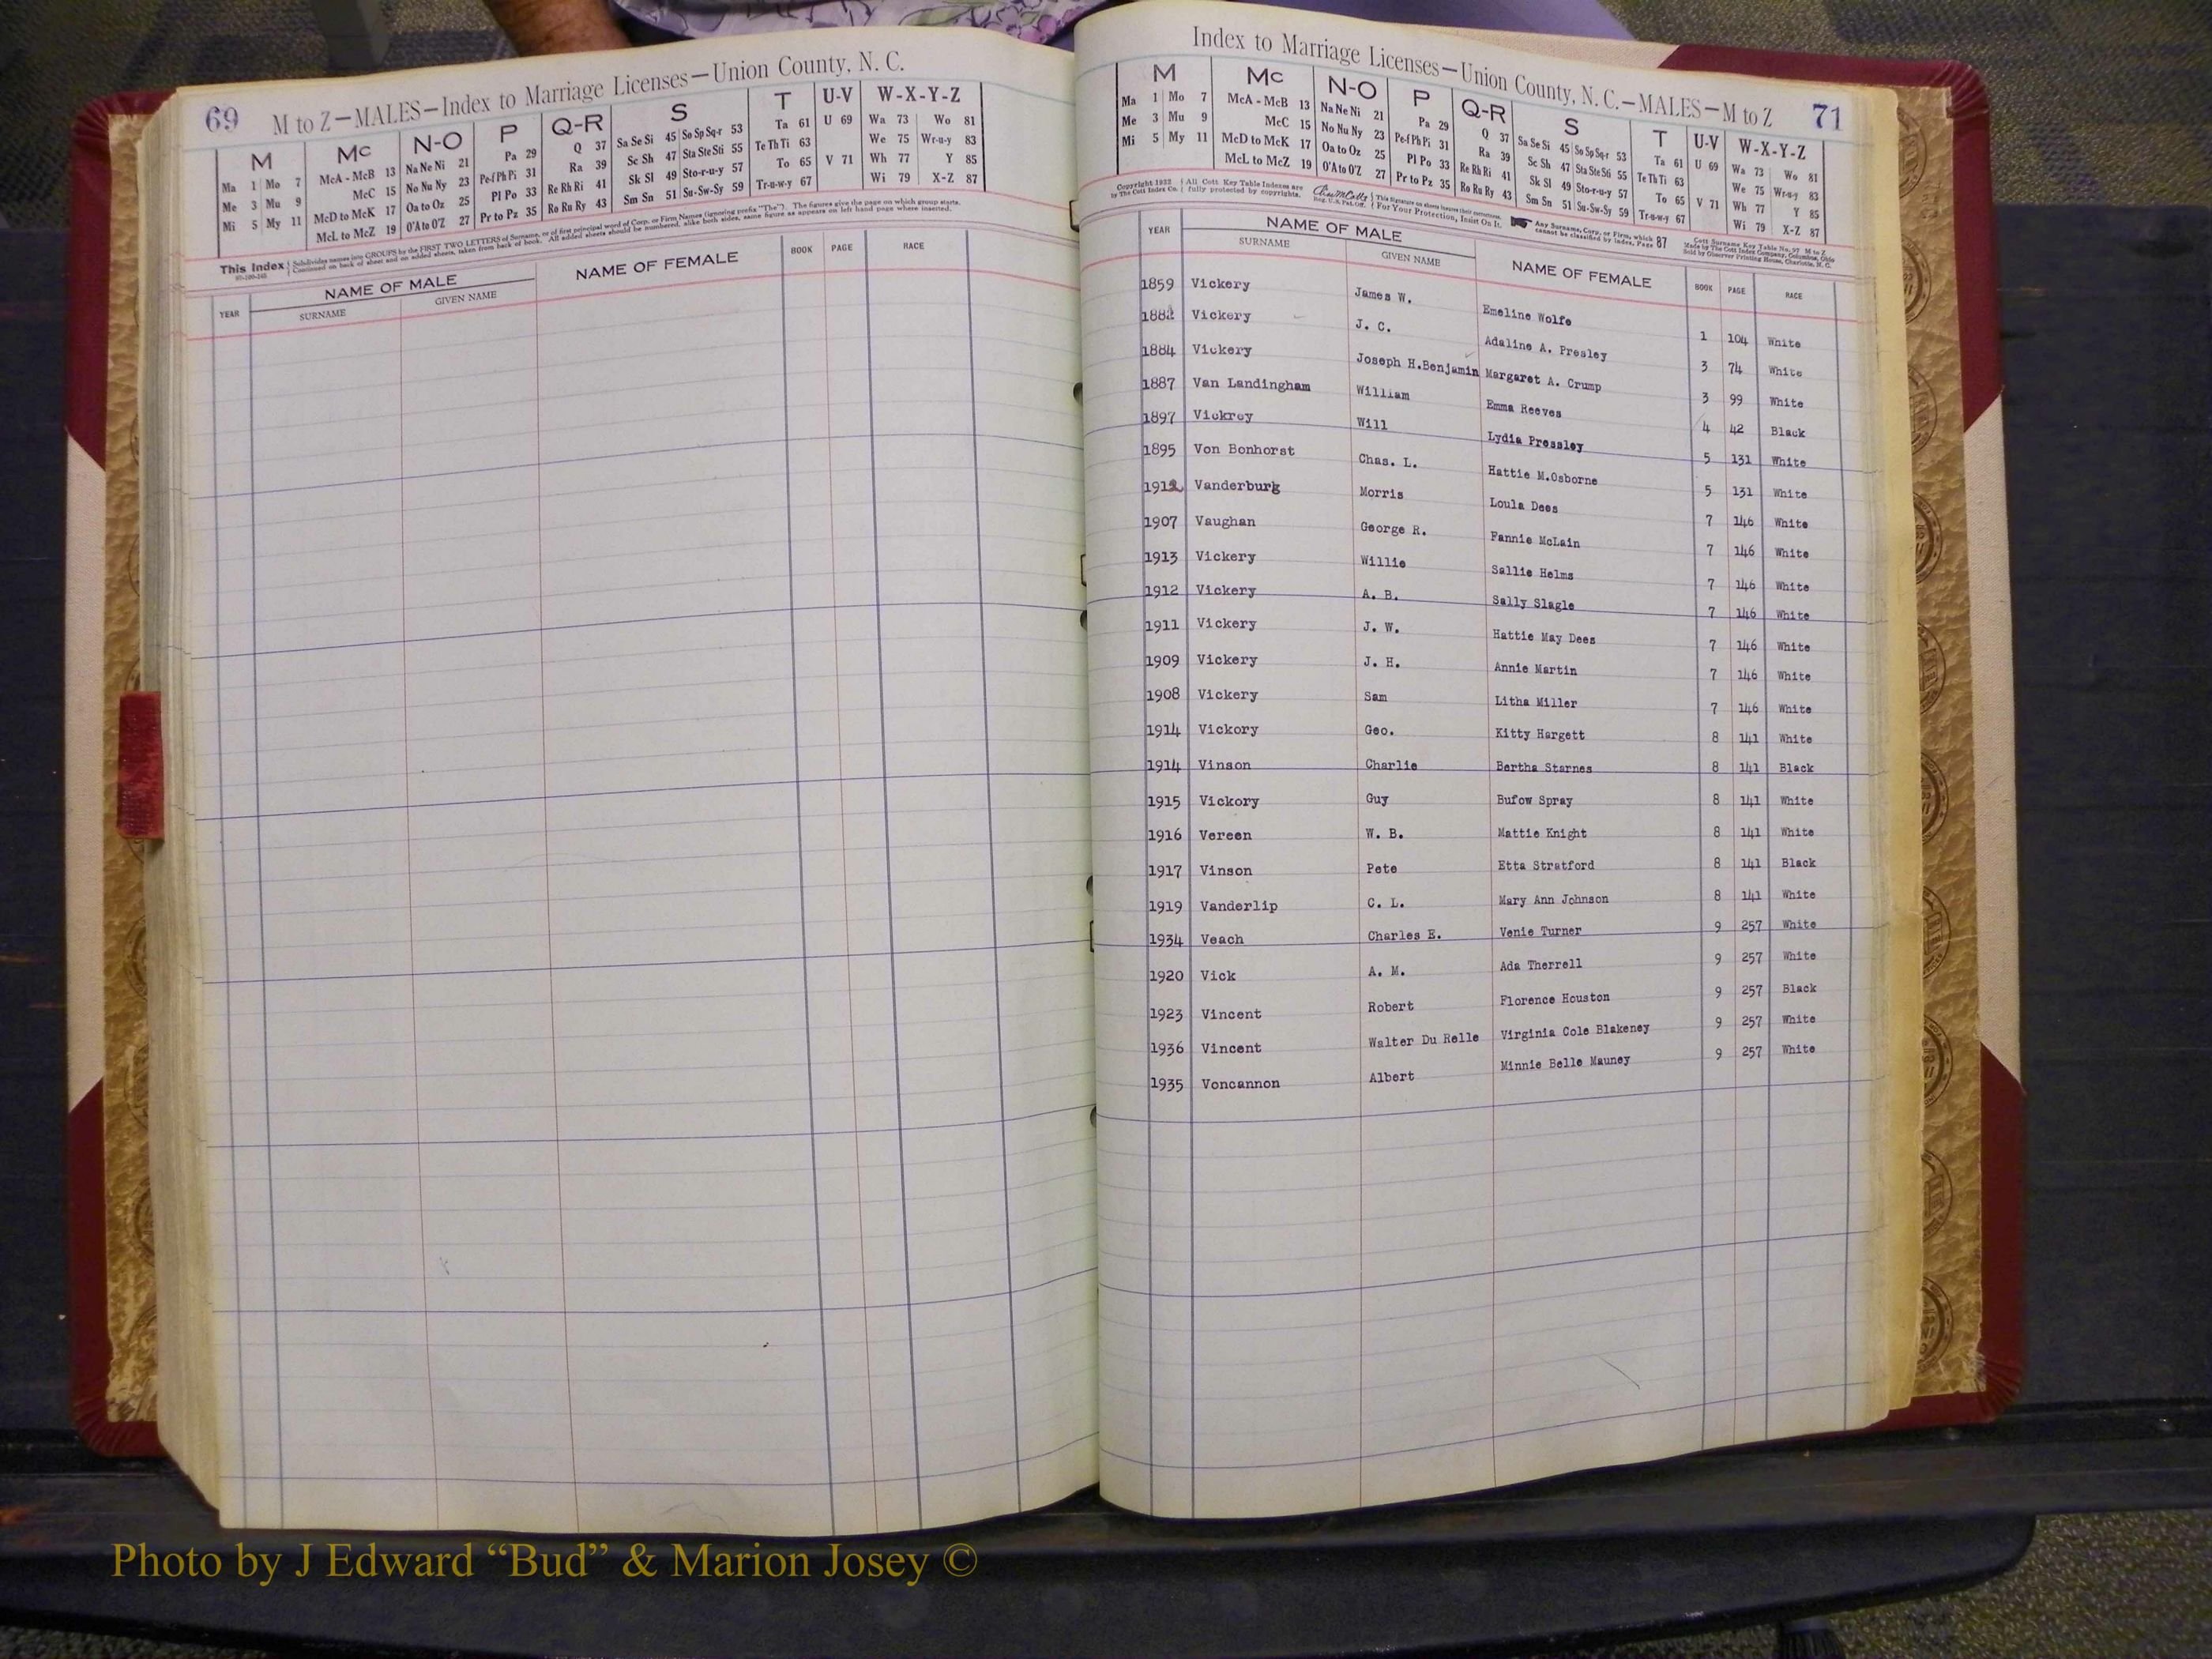 69 M to Z—MALES—Index to Marriage Licenses—Union County, N. C.
M Mc N-O P Q-R S T U-V W-X-Y-Z
Ma 1 Mo 7 McA - McB 13 Na Ne Ni 21 Pa 29 Q 37 Sa Se Si 45 So Sp Sq-r 53 Ta 61 U 69 Wa 73 Wo 81
Me 3 Mu 9 McC 15 No Nu Ny 23 Pe-f Ph Pi 31 Ra 39 Sc Sh 47 Sta Ste Sti 55 Te Th Ti 63 We 75 Wr-u-y 83
Mi 5 My 11 McD to McK 17 Oa to Oz 25 Pl Po 33 Re Rh Ri 41 Sk Sl 49 Sto-r-u-y 57 To 65 V 71 Wh 77 Y 85
McL to McZ 19 O'A to O'Z 27 Pr to Pz 35 Ro Ru Ry 43 Sm Sn 51 Su-Sw-Sy 59 Tr-u-w-y 67 Wi 79 X-Z 87
This Index Subdivides names into GROUPS by the FIRST TWO LETTERS of Surname, or of first principal word of Corp. or Firm Names (ignoring prefix "The"). The figures give the page on which group starts.
Continued on back of sheet and on added sheets, taken from back of book. All added sheets should be numbered, alike both sides, same figure as appears on left hand page where inserted.
YEAR NAME OF MALE NAME OF FEMALE BOOK PAGE RACE
SURNAME GIVEN NAME
Index to Marriage Licenses—Union County, N. C.—MALES—M to Z 71
M Mc N-O P Q-R S T U-V W-X-Y-Z
Ma 1 Mo 7 McA - McB 13 Na Ne Ni 21 Pa 29 Q 37 Sa Se Si 45 So Sp Sq-r 53 Ta 61 U 69 Wa 73 Wo 81
Me 3 Mu 9 McC 15 No Nu Ny 23 Pe-f Ph Pi 31 Ra 39 Sc Sh 47 Sta Ste Sti 55 Te Th Ti 63 We 75 Wr-u-y 83
Mi 5 My 11 McD to McK 17 Oa to Oz 25 Pl Po 33 Re Rh Ri 41 Sk Sl 49 Sto-r-u-y 57 To 65 V 71 Wh 77 Y 85
McL to McZ 19 O'A to O'Z 27 Pr to Pz 35 Ro Ru Ry 43 Sm Sn 51 Su-Sw-Sy 59 Tr-u-w-y 67 Wi 79 X-Z 87
Copyright 1932 by The Cott Index Co. All Cott Key Table Indexes are fully protected by copyrights. For Your Protection, Insist On It. Any Surname, Corp. or Firm, which cannot be classified by index, Page 87
Cott Surname Key Table No. 97 M to Z
Made by The Cott Index Company, Columbus, Ohio
Sold by Observer Printing House, Charlotte, N. C.
YEAR NAME OF MALE NAME OF FEMALE BOOK PAGE RACE
SURNAME GIVEN NAME
1859 Vickery James W. Emeline Wolfe 1 104 White
1882 Vickery J. C. Adaline A. Presley 3 74 White
1884 Vickery Joseph H.Benjamin Margaret A. Crump 3 99 White
1887 Van Landingham William Emma Reeves 4 42 Black
1897 Vickrey Will Lydia Pressley 5 131 White
1895 Von Bonhorst Chas. L. Hattie M.Osborne 5 131 White
1912 Vanderburg Morris Loula Dees 7 146 White
1907 Vaughan George R. Fannie McLain 7 146 White
1913 Vickery Willie Sallie Helms 7 146 White
1912 Vickery A. B. Sally Slagle 7 146 White
1911 Vickery J. W. Hattie May Dees 7 146 White
1909 Vickery J. H. Annie Martin 7 146 White
1908 Vickery Sam Litha Miller 7 146 White
1914 Vickory Geo. Kitty Hargett 8 141 White
1914 Vinson Charlie Bertha Starnes 8 141 Black
1915 Vickory Guy Bufow Spray 8 141 White
1916 Vereen W. B. Mattie Knight 8 141 White
1917 Vinson Pete Etta Stratford 8 141 Black
1919 Vanderlip C. L. Mary Ann Johnson 8 141 White
1934 Veach Charles E. Venie Turner 9 257 White
1920 Vick A. M. Ada Therrell 9 257 White
1923 Vincent Robert Florence Houston 9 257 Black
1936 Vincent Walter Du Relle Virginia Cole Blakeney 9 257 White
1935 Voncannon Albert Minnie Belle Mauney 9 257 White
Photo by J Edward “Bud” & Marion Josey ©